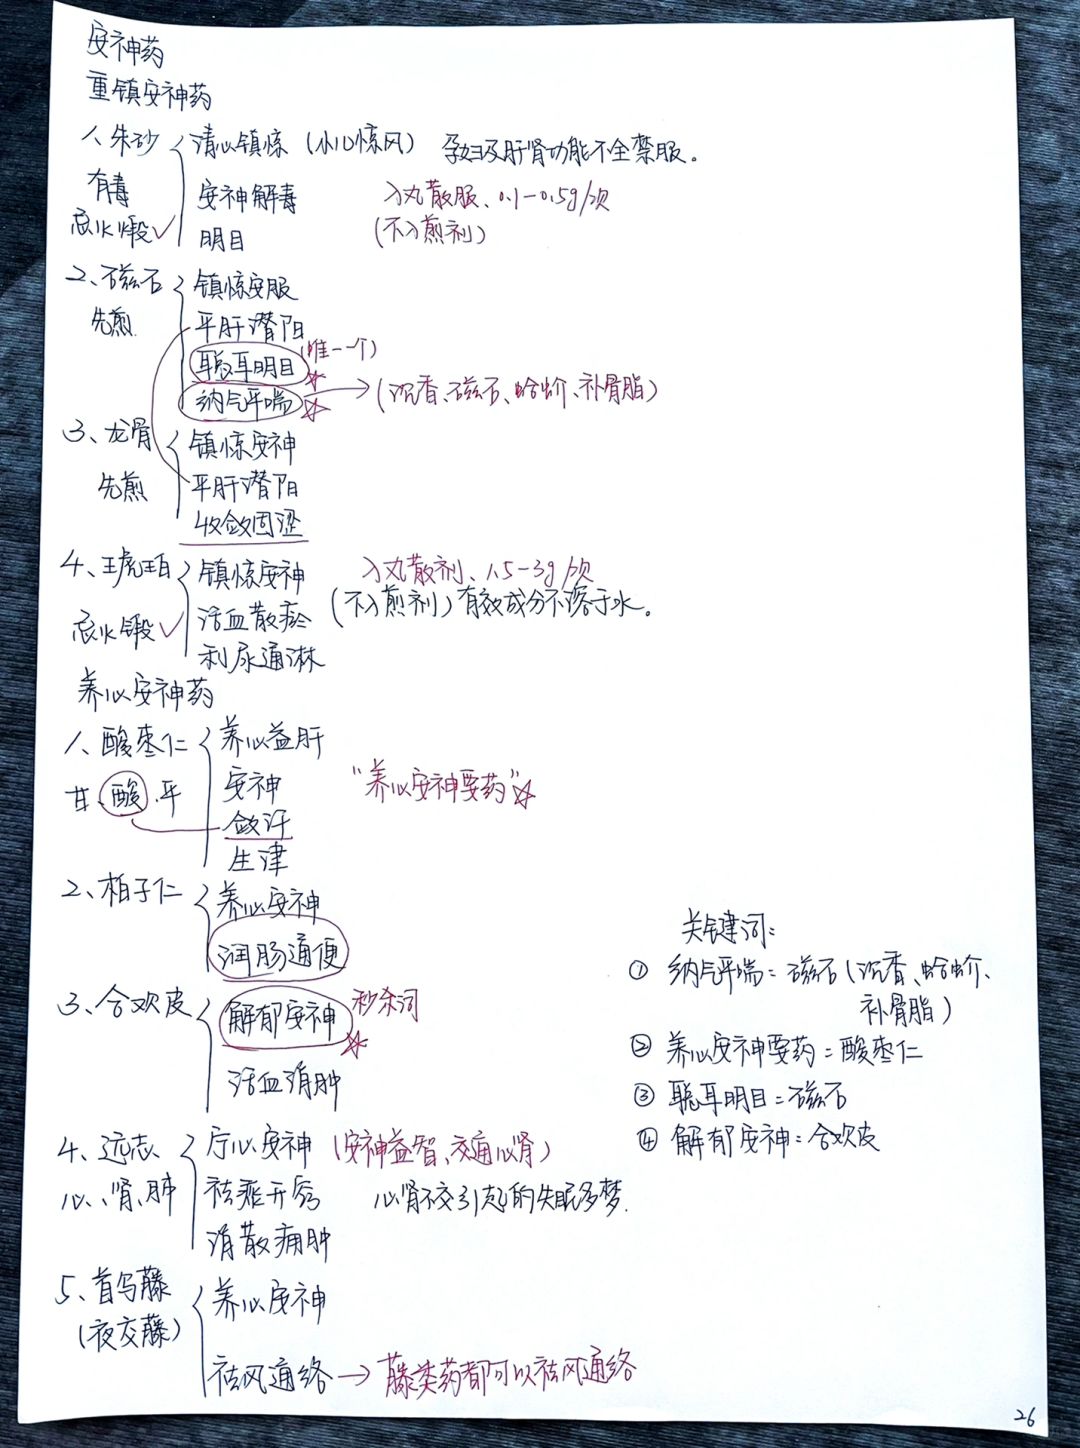 安神药
重镇安神药
1、朱砂 清心镇惊（小儿惊风） 孕妇及肝肾功能不全禁服。
有毒 安神解毒 入丸散服、0.1-0.5g/次
忌火煅✓ 明目 (不入煎剂)
2、磁石 镇惊安服
先煎. 平肝潜阳
聪耳明目 (唯一个) ☆
纳气平喘 ☆ → (沉香、磁石、蛤蚧、补骨脂)
3、龙骨 镇惊安神
先煎 平肝潜阳
收敛固涩
4、琥珀 镇惊安神 入丸散剂、1.5-3g/次
忌火锻✓ 活血散瘀 (不入煎剂) 有效成分不溶于水。
利尿通淋
养心安神药
1、酸枣仁 养心益肝
甘、酸、平 安神 “养心安神要药”☆
敛汗
生津
2、柏子仁 养心安神
润肠通便
3、合欢皮 解郁安神 秒杀词 ☆
活血消肿
4、远志 宁心安神 (安神益智、交通心肾)
心、肾、肺 祛痰开窍 心肾不交引起的失眠多梦.
消散痈肿
5、首乌藤 养心安神
(夜交藤)
祛风通络 → 藤类药都可以祛风通络
关键词:
① 纳气平喘=磁石(沉香、蛤蚧、
补骨脂)
② 养心安神要药=酸枣仁
③ 聪耳明目=磁石
④ 解郁安神=合欢皮
26